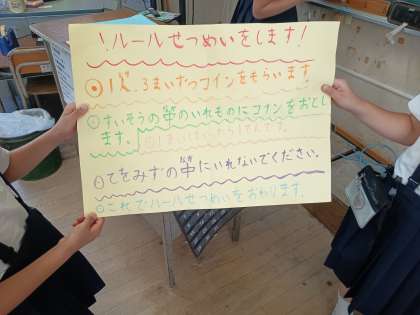 ！ルールせつめいをします！
⦿1ぱん、3まいずつコインをもらいます
○すいそうの中のいれものにコインをおとし
ます。
○てをみずの中にいれないでください。
○これでルールせつめいをおわります。